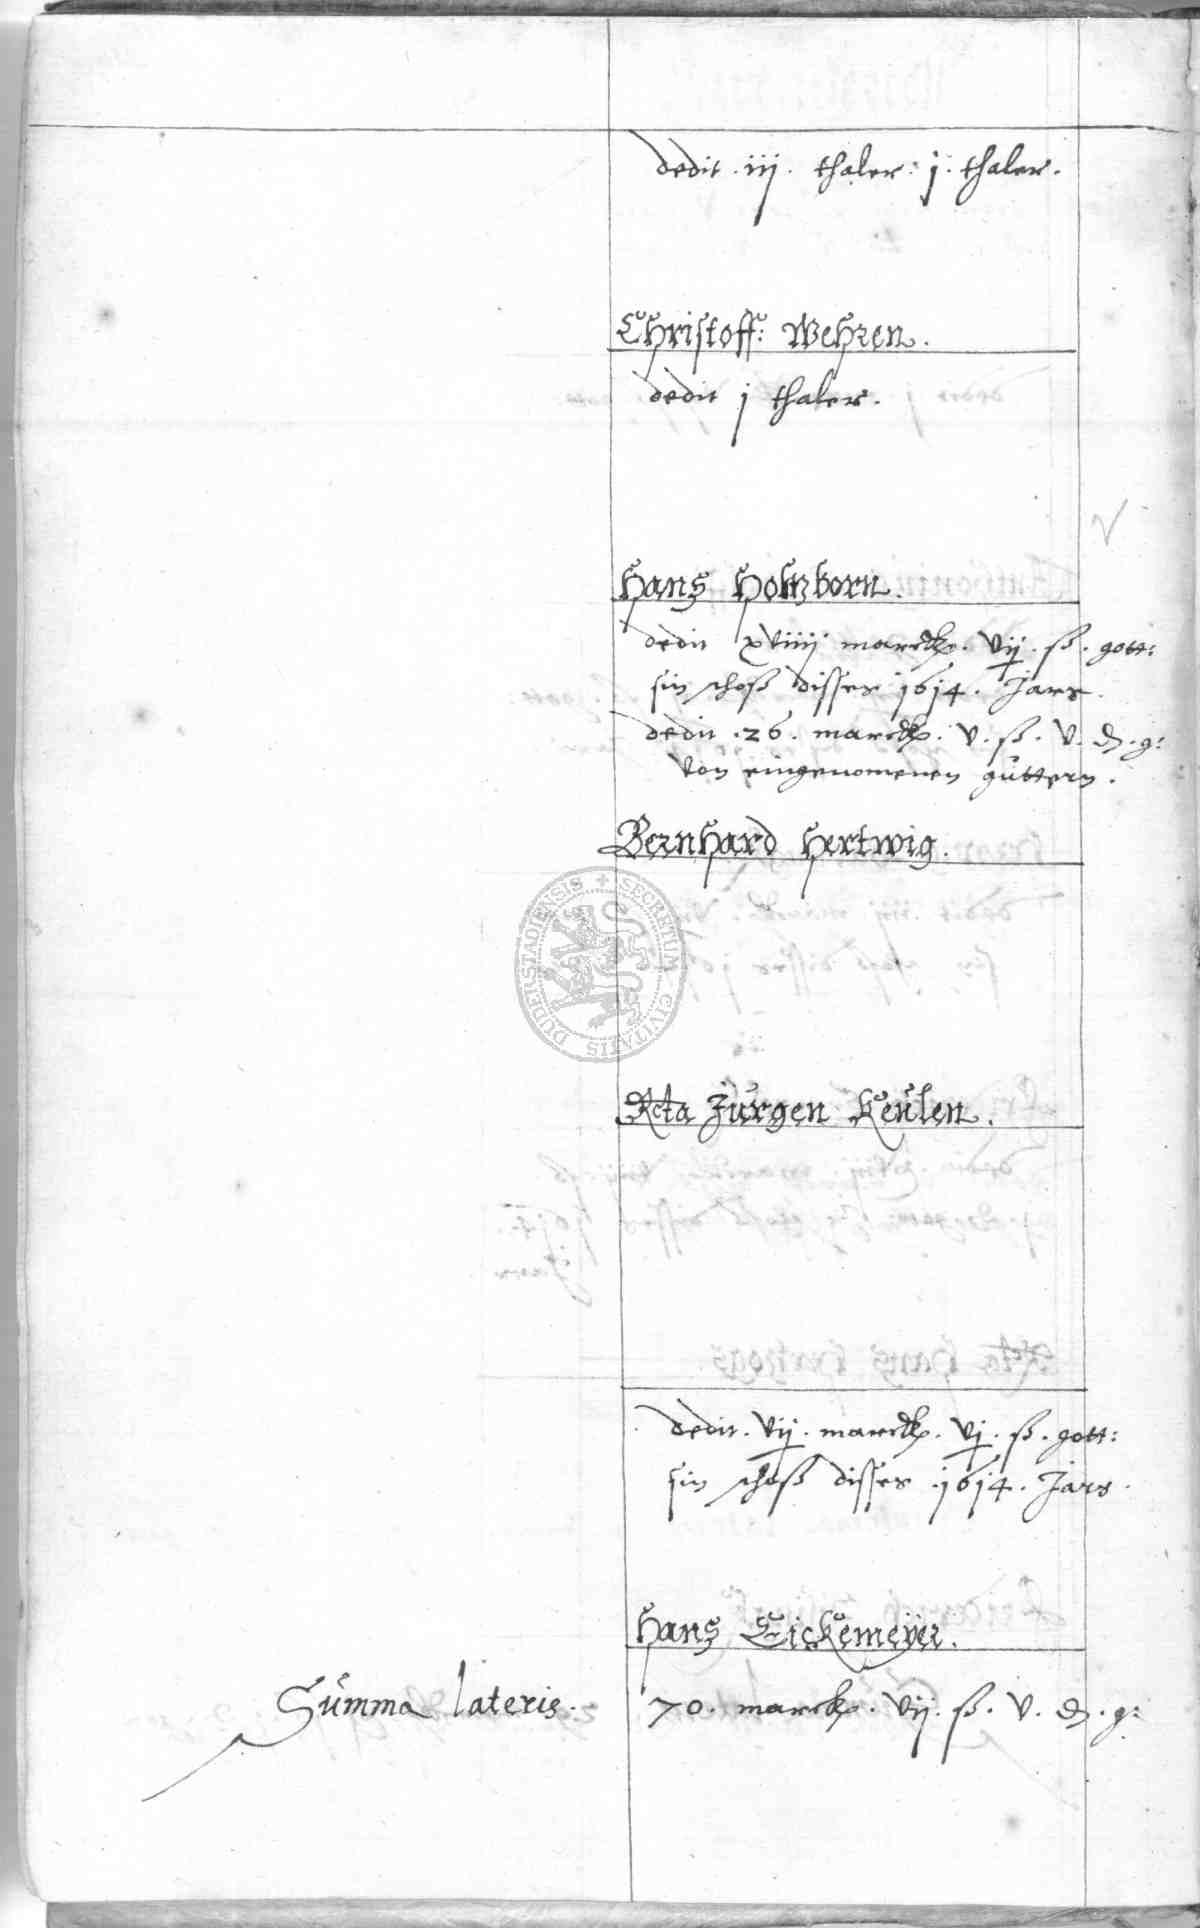 dedit . iij . thaler : j . thaler .
Christoff : Wehren .
dedit j thaler .
Hans Holtzborn .
dedit xviiij marck . vij . ß . gott :
sin schoß disses 1614 . Jars .
dedit . 26 . marck . v . ß . v . d . g :
von eingenomenen güttern .
Bernhard Hertwig .
SECRETUM CIVITATIS DUDERSTADIENSIS
Rcta Jürgen Keulen .
dedit . vij . marck . vj . ß . gott :
sin schoß disses . 1614 . Jars .
Hans Eickemeÿer .
Summa lateris . 70 . marck . vij . ß . v . d . g :